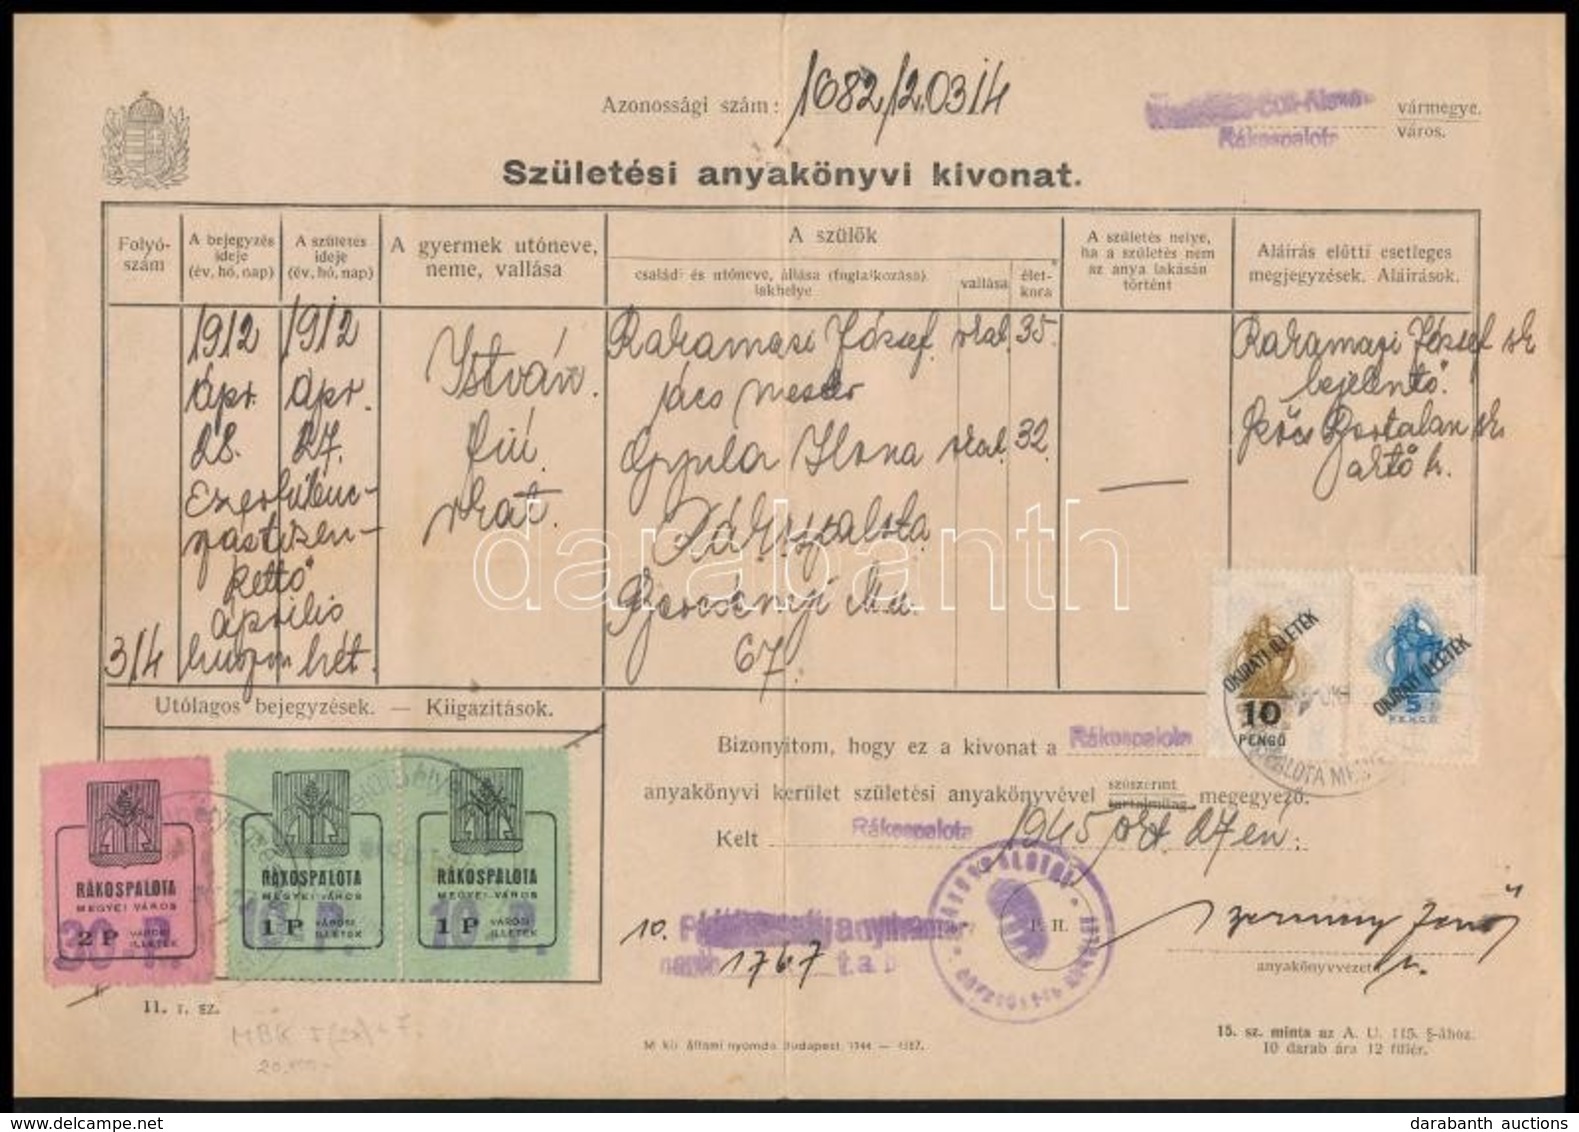 Azonossági szám: 1682/1.2.0314
vármegye.
Rákospalota város.
Születési anyakönyvi kivonat.
Folyó-
szám
A bejegyzés
ideje
(év, hó, nap)
A születés
ideje
(év, hó, nap)
A gyermek utóneve,
neme, vallása
A szülők
családi és utóneve, állása (foglalkozása),
lakhelye
vallása
élet-
kora
A születés helye,
ha a születés nem
az anya lakásán
történt
Aláírás előtti esetleges
megjegyzések. Aláírások.
314
1912
ápr.
28.
1912
ápr.
27.
Ezerkilenc-
száztizen-
kettő
április
huszonhét.
István.
fiú.
rkat.
József rkat. 35.
ács mester
Gyula Ilona rkat. 32.
Rákospalota
Bercsényi Mu.
67.
József sk
bejelentő.
Bertalan sk.
Utólagos bejegyzések. — Kiigazitások.
OKIRATI ILLETÉK
10
PENGŐ
OKIRATI ILLETÉK
5
PENGŐ
Bizonyitom, hogy ez a kivonat a Rákospalota
anyakönyvi kerület születési anyakönyvével szószerint
tartalmilag megegyező.
Kelt Rákospalota 1945 okt 27 én.
RÁKOSPALOTA
MEGYEI VÁROS
2 P VÁROSI
ILLETÉK
30.-P.
RÁKOSPALOTA
MEGYEI VÁROS
1 P VÁROSI
ILLETÉK
10.-P.
RÁKOSPALOTA
MEGYEI VÁROS
1 P VÁROSI
ILLETÉK
10.-P.
10.
1767
P. H.
Jenő
anyakönyvvezető
11. r. sz.
20.000.-
M. kir. állami nyomda, Budapest. 1944 —
15. sz. minta az A. U. 115. §-ához.
10 darab ára 12 fillér.
darabanth
darabanth auctions